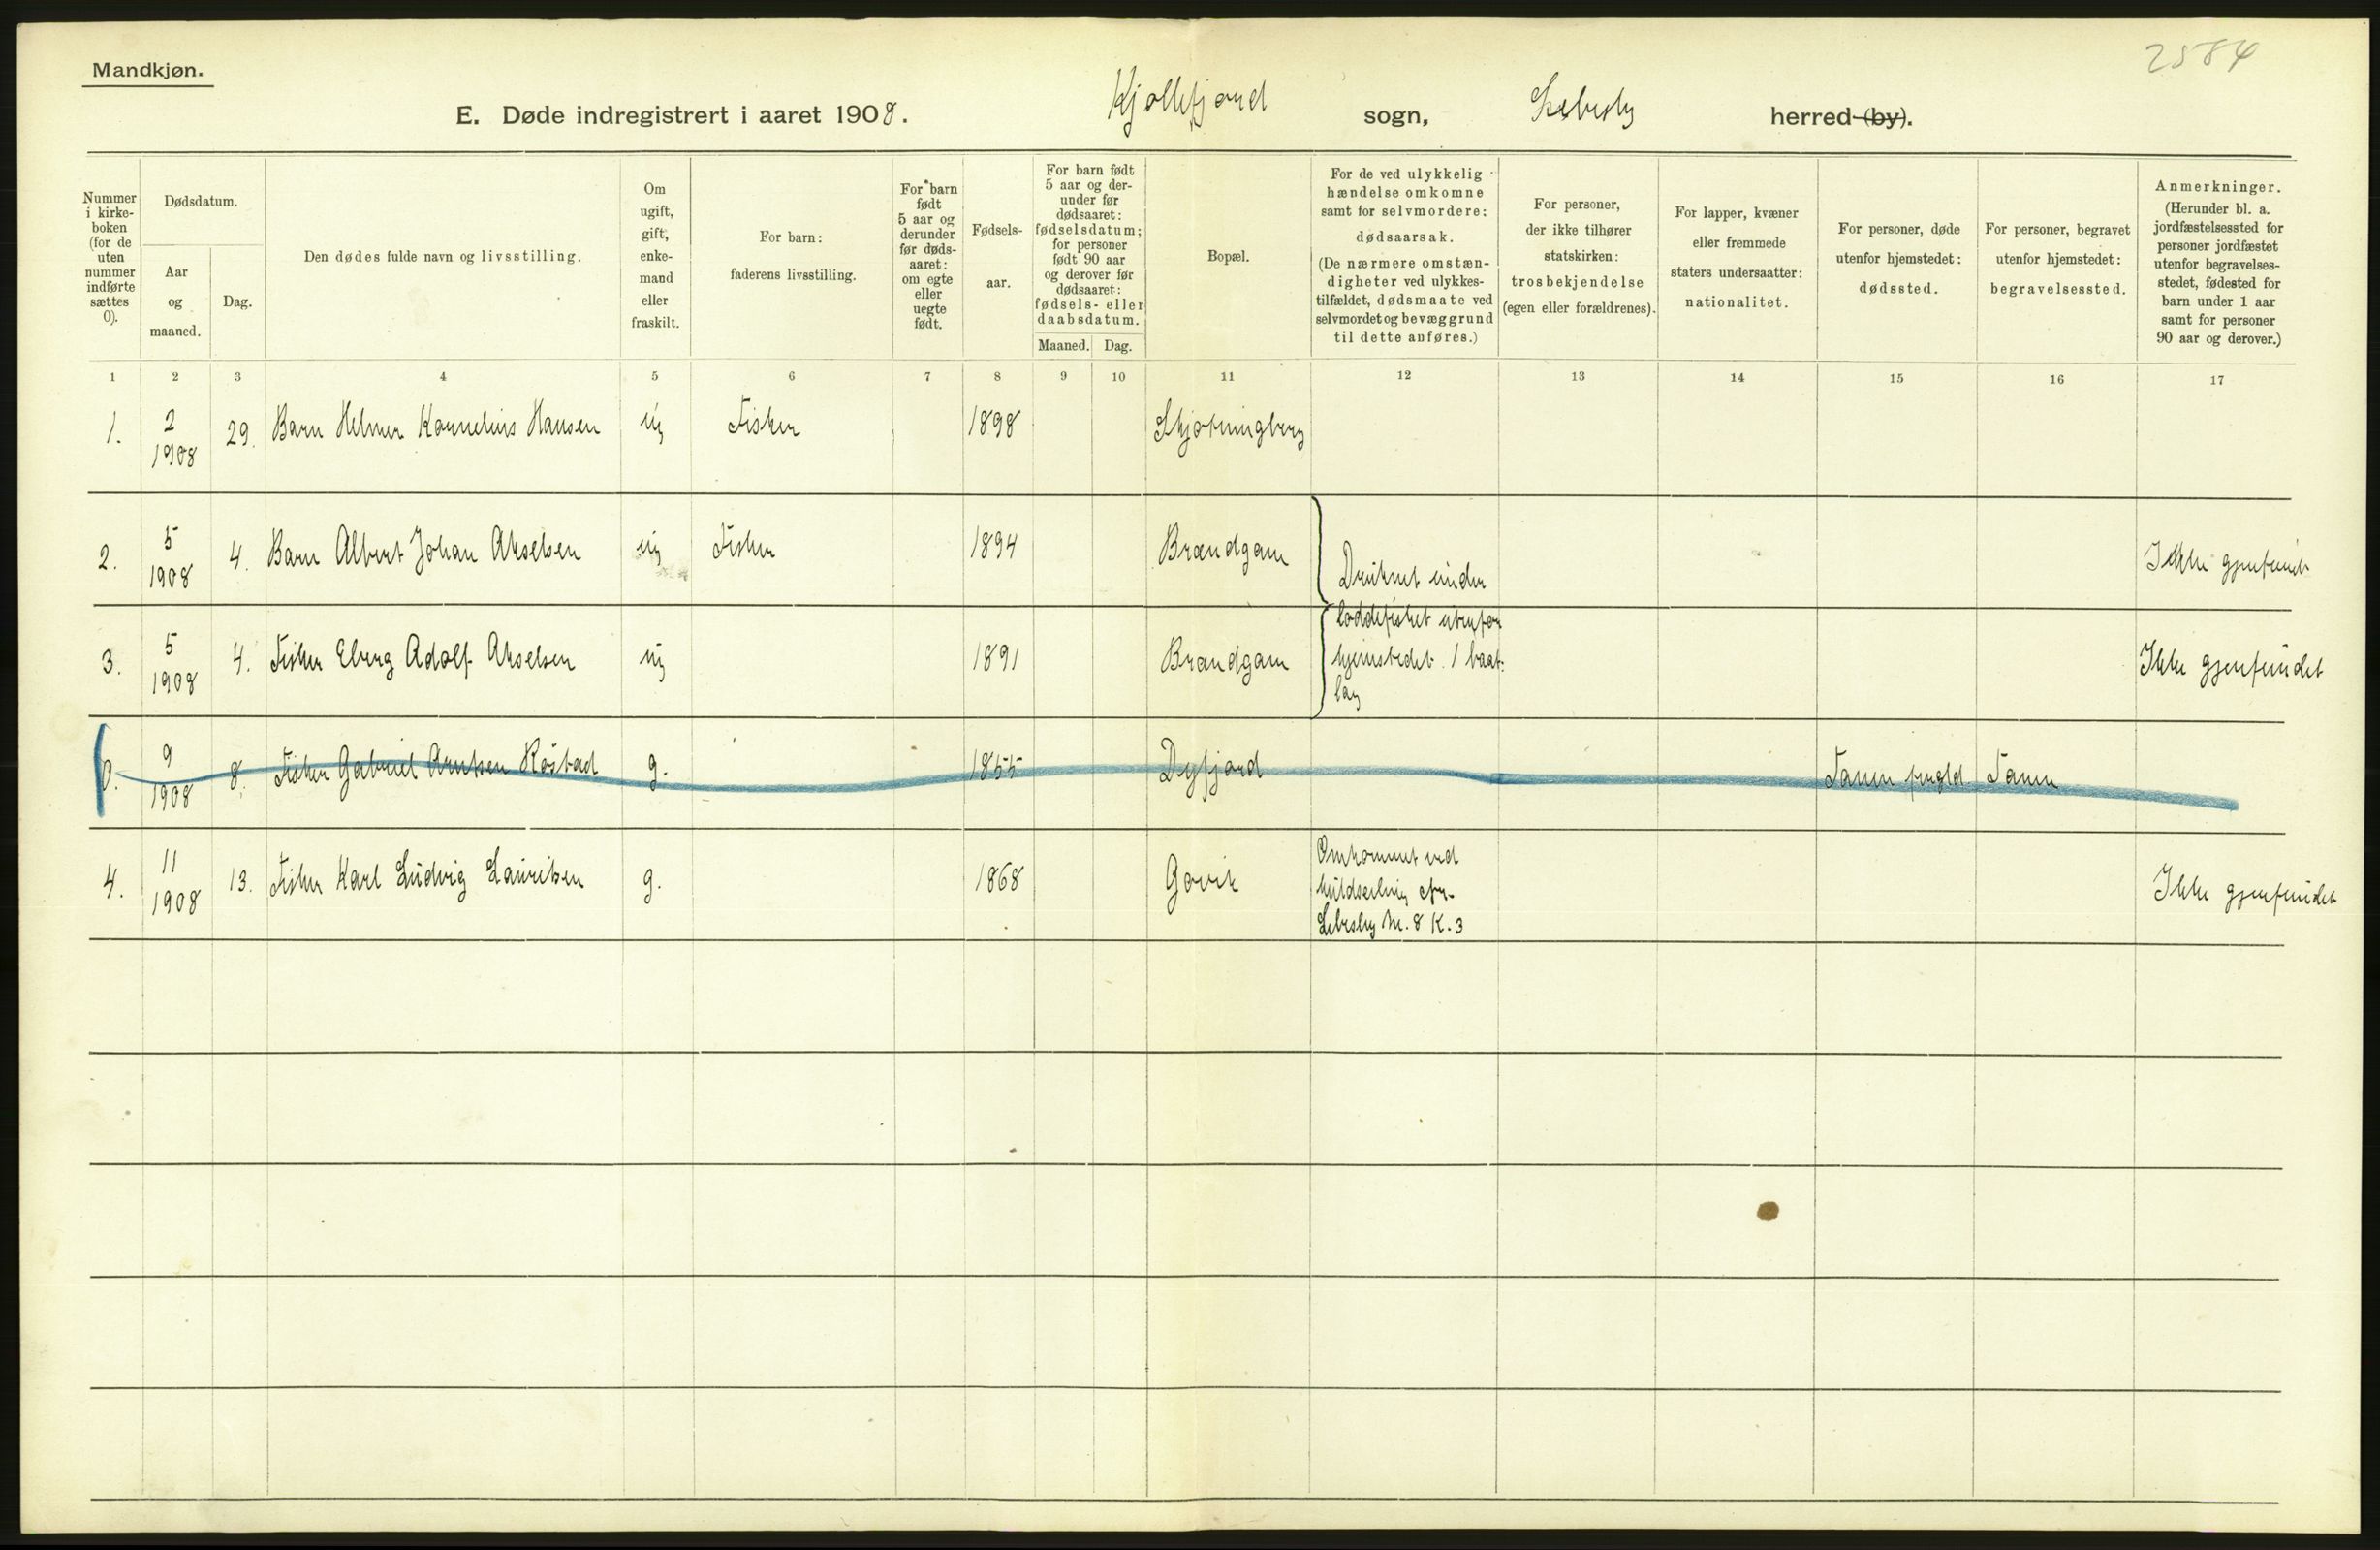 Mandkjøn.
2584
E. Døde indregistrert i aaret 1908. Kjøllefjord sogn, Lebesby herred (by).
Nummer i kirkeboken (for de uten nummer indførte sættes 0).
Dødsdatum.
Aar og maaned.
Dag.
Den dødes fulde navn og livsstilling.
Om ugift, gift, enkemand eller fraskilt.
For barn: faderens livsstilling.
For barn født 5 aar og derunder før dødsaaret: om egte eller uegte født.
Fødselsaar.
For barn født 5 aar og derunder før dødsaaret: fødselsdatum; for personer født 90 aar og derover før dødsaaret: fødsels- eller daabsdatum.
Maaned. Dag.
Bopæl.
For de ved ulykkelig hændelse omkomne samt for selvmordere: dødsaarsak. (De nærmere omstændigheter ved ulykkestilfældet, dødsmaate ved selvmordet og bevæggrund til dette anføres.)
For personer, der ikke tilhører statskirken: trosbekjendelse (egen eller forældrenes).
For lapper, kvæner eller fremmede staters undersaatter: nationalitet.
For personer, døde utenfor hjemstedet: dødssted.
For personer, begravet utenfor hjemstedet: begravelsessted.
Anmerkninger. (Herunder bl. a. jordfæstelsessted for personer jordfæstet utenfor begravelsesstedet, fødested for barn under 1 aar samt for personer 90 aar og derover.)
1 2 3 4 5 6 7 8 9 10 11 12 13 14 15 16 17
1. 2 1908 29. Barn Helmer Kornelius Hansen ug Fisker 1898 Skjøtningberg
2. 5 1908 4. Barn Albert Johan Akselsen ug Fisker 1894 Brændgam Druknet under Ikke gjenfundet
loddefisket utenfor
3. 5 1908 4. Fisker Eberg Adolf Akselsen ug 1891 Brændgam hjemstedet. 1 baat- Ikke gjenfundet
lag
0. 9 1908 8. Fisker Gabriel Arntsen Røstad g. 1855 Dyfjord Tanen Tanen
4. 11 1908 13. Fisker Karl Ludvig Lauritsen g. 1868 Gavik Omkommet ved Ikke gjenfundet
cfr.
Lebesby M. 8 K. 3